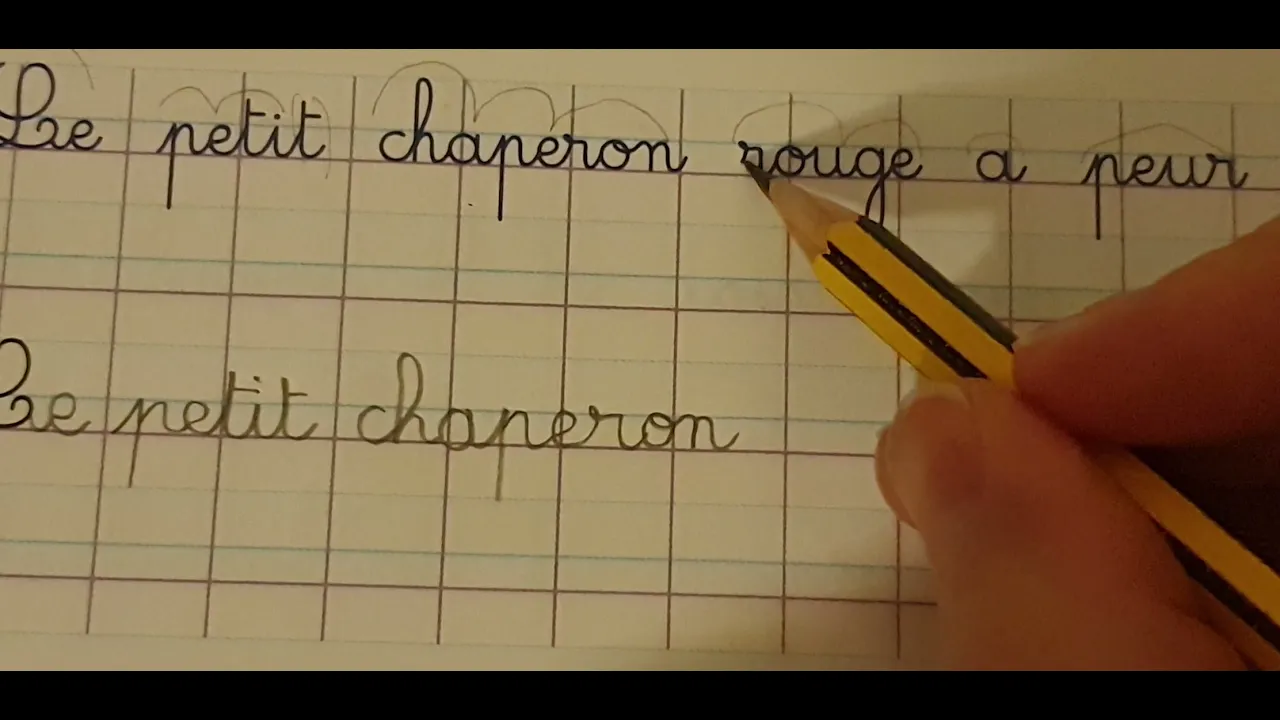 Le petit chaperon rouge a peur
Le petit chaperon